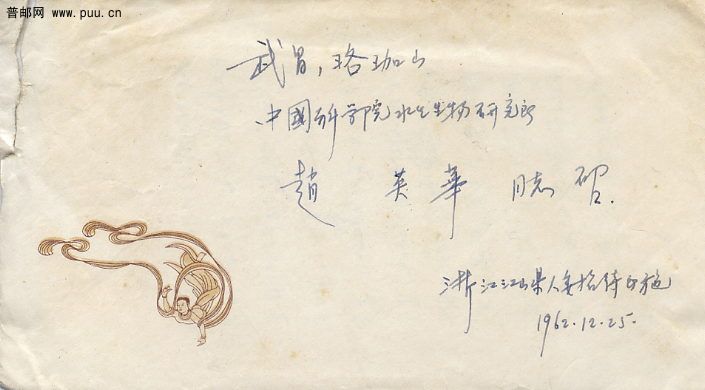 普邮网 www.puu.cn
武昌，珞珈山
中國科学院水生生物研究所
趙 英華 同志 啓.
浙江江山县人委招待所
1962.12.25.